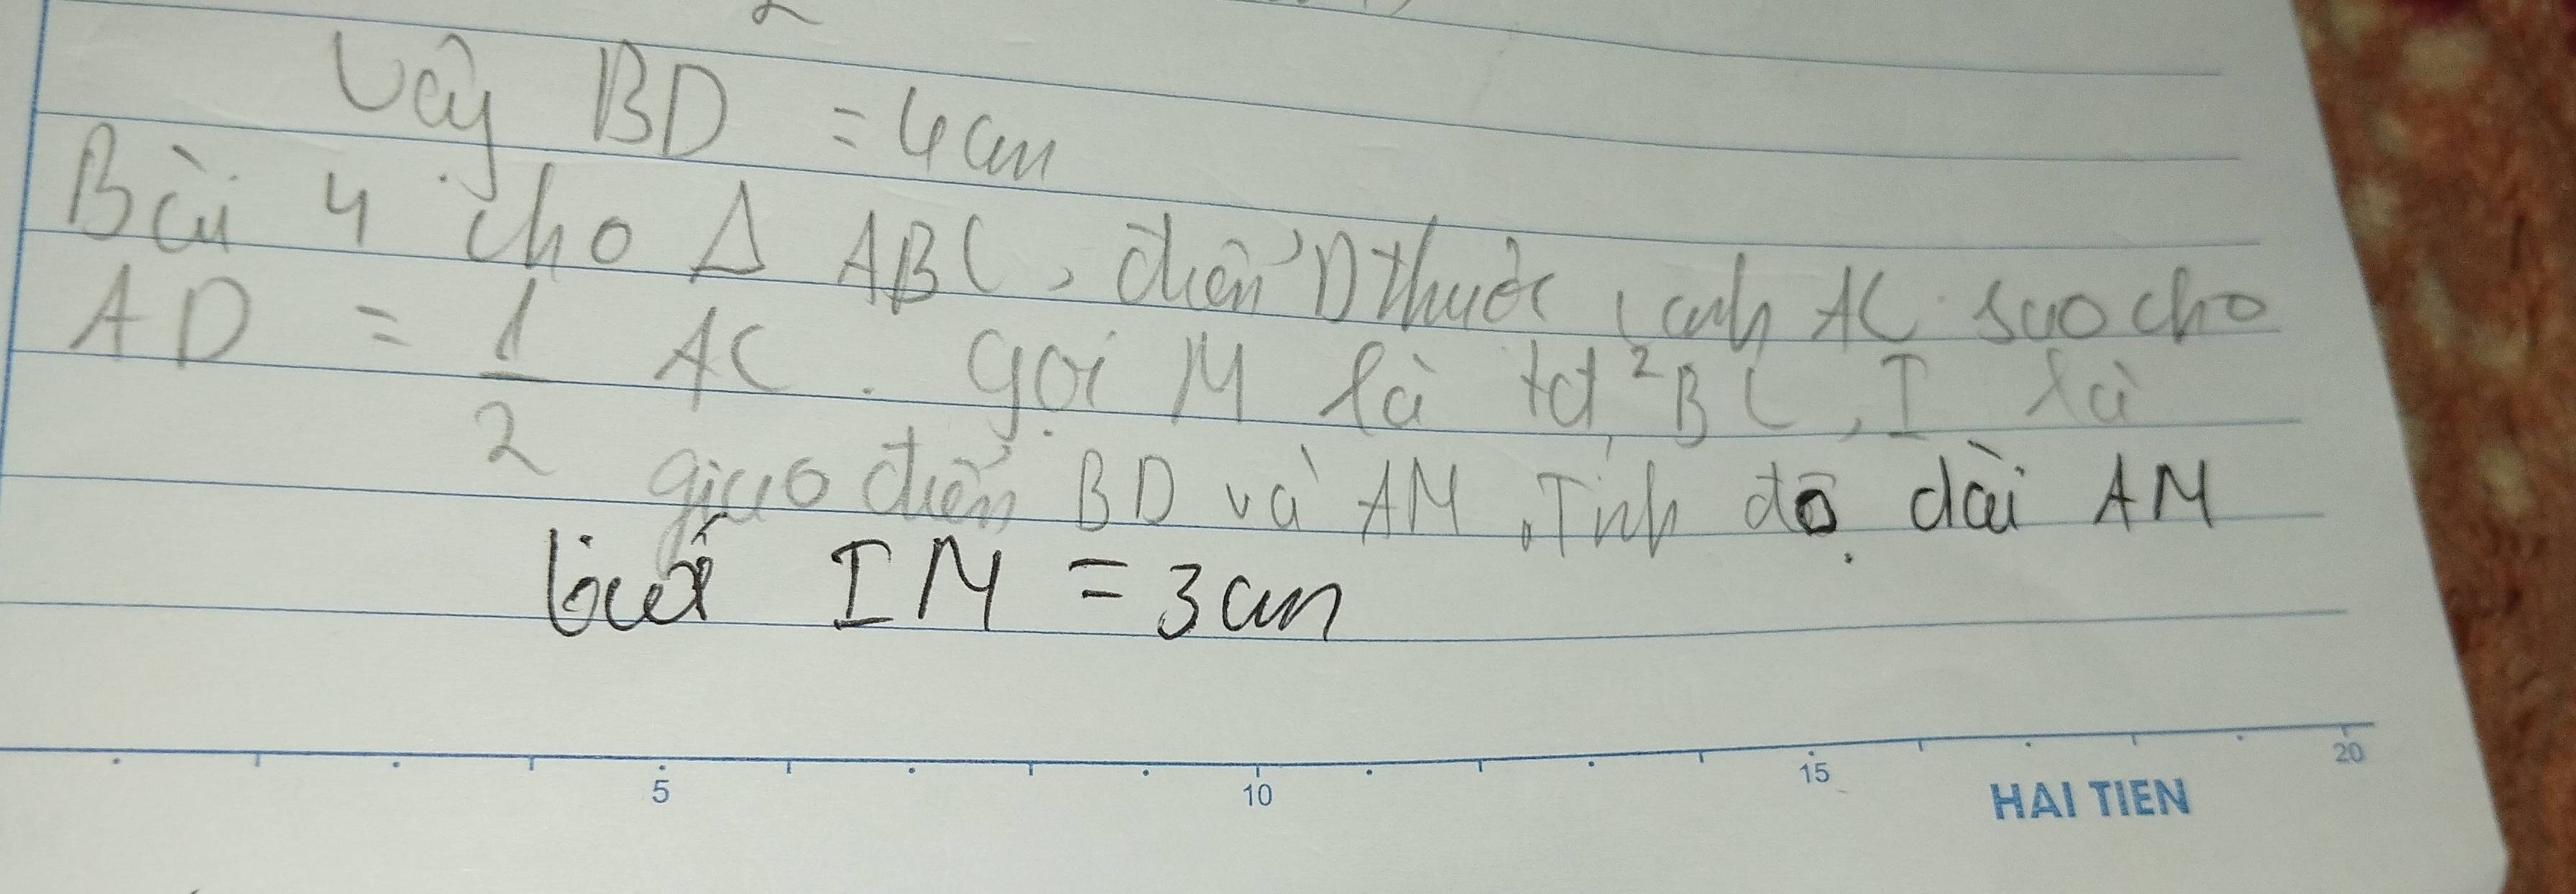 Vậy BD = 4cm
Bài 4 cho Δ ABC, điểm D thuộc cạnh AC sao cho
AD = 1/2 AC. gọi M là tđ² BC, I là
giao điểm BD và AM. Tính độ dài AM
biết IM = 3cm
5 10 15 20
HAI TIEN